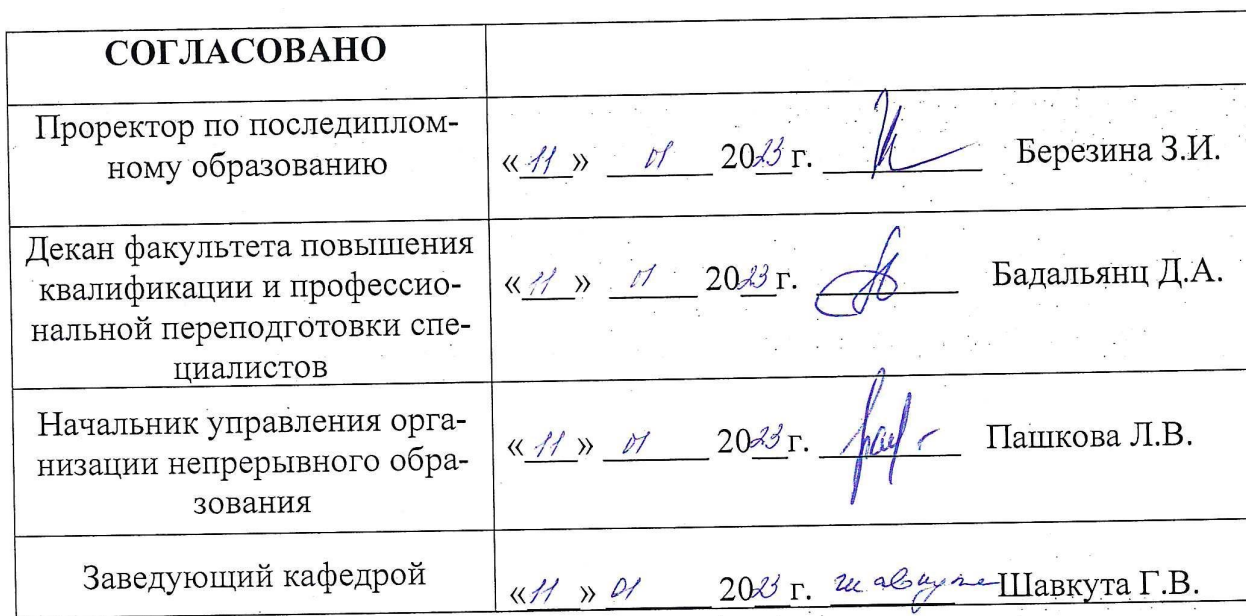 СОГЛАСОВАНО
Проректор по последиплом-
ному образованию
«11» 01 2023 г. Березина З.И.
Декан факультета повышения
квалификации и профессио-
нальной переподготовки спе-
циалистов
«11» 01 2023 г. Бадальянц Д.А.
Начальник управления орга-
низации непрерывного обра-
зования
«11» 01 2023 г. Пашкова Л.В.
Заведующий кафедрой
«11» 01 2023 г. Шавкута Г.В.